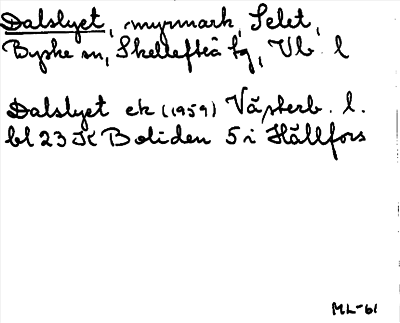 Dalslyet, myrmark, Selet,
Byske sn, Skellefteå kg, Vb. l
Dalslyet ek (1959) Västerb. l.
bl 23 K Boliden 5 i Hällfors
ML-61